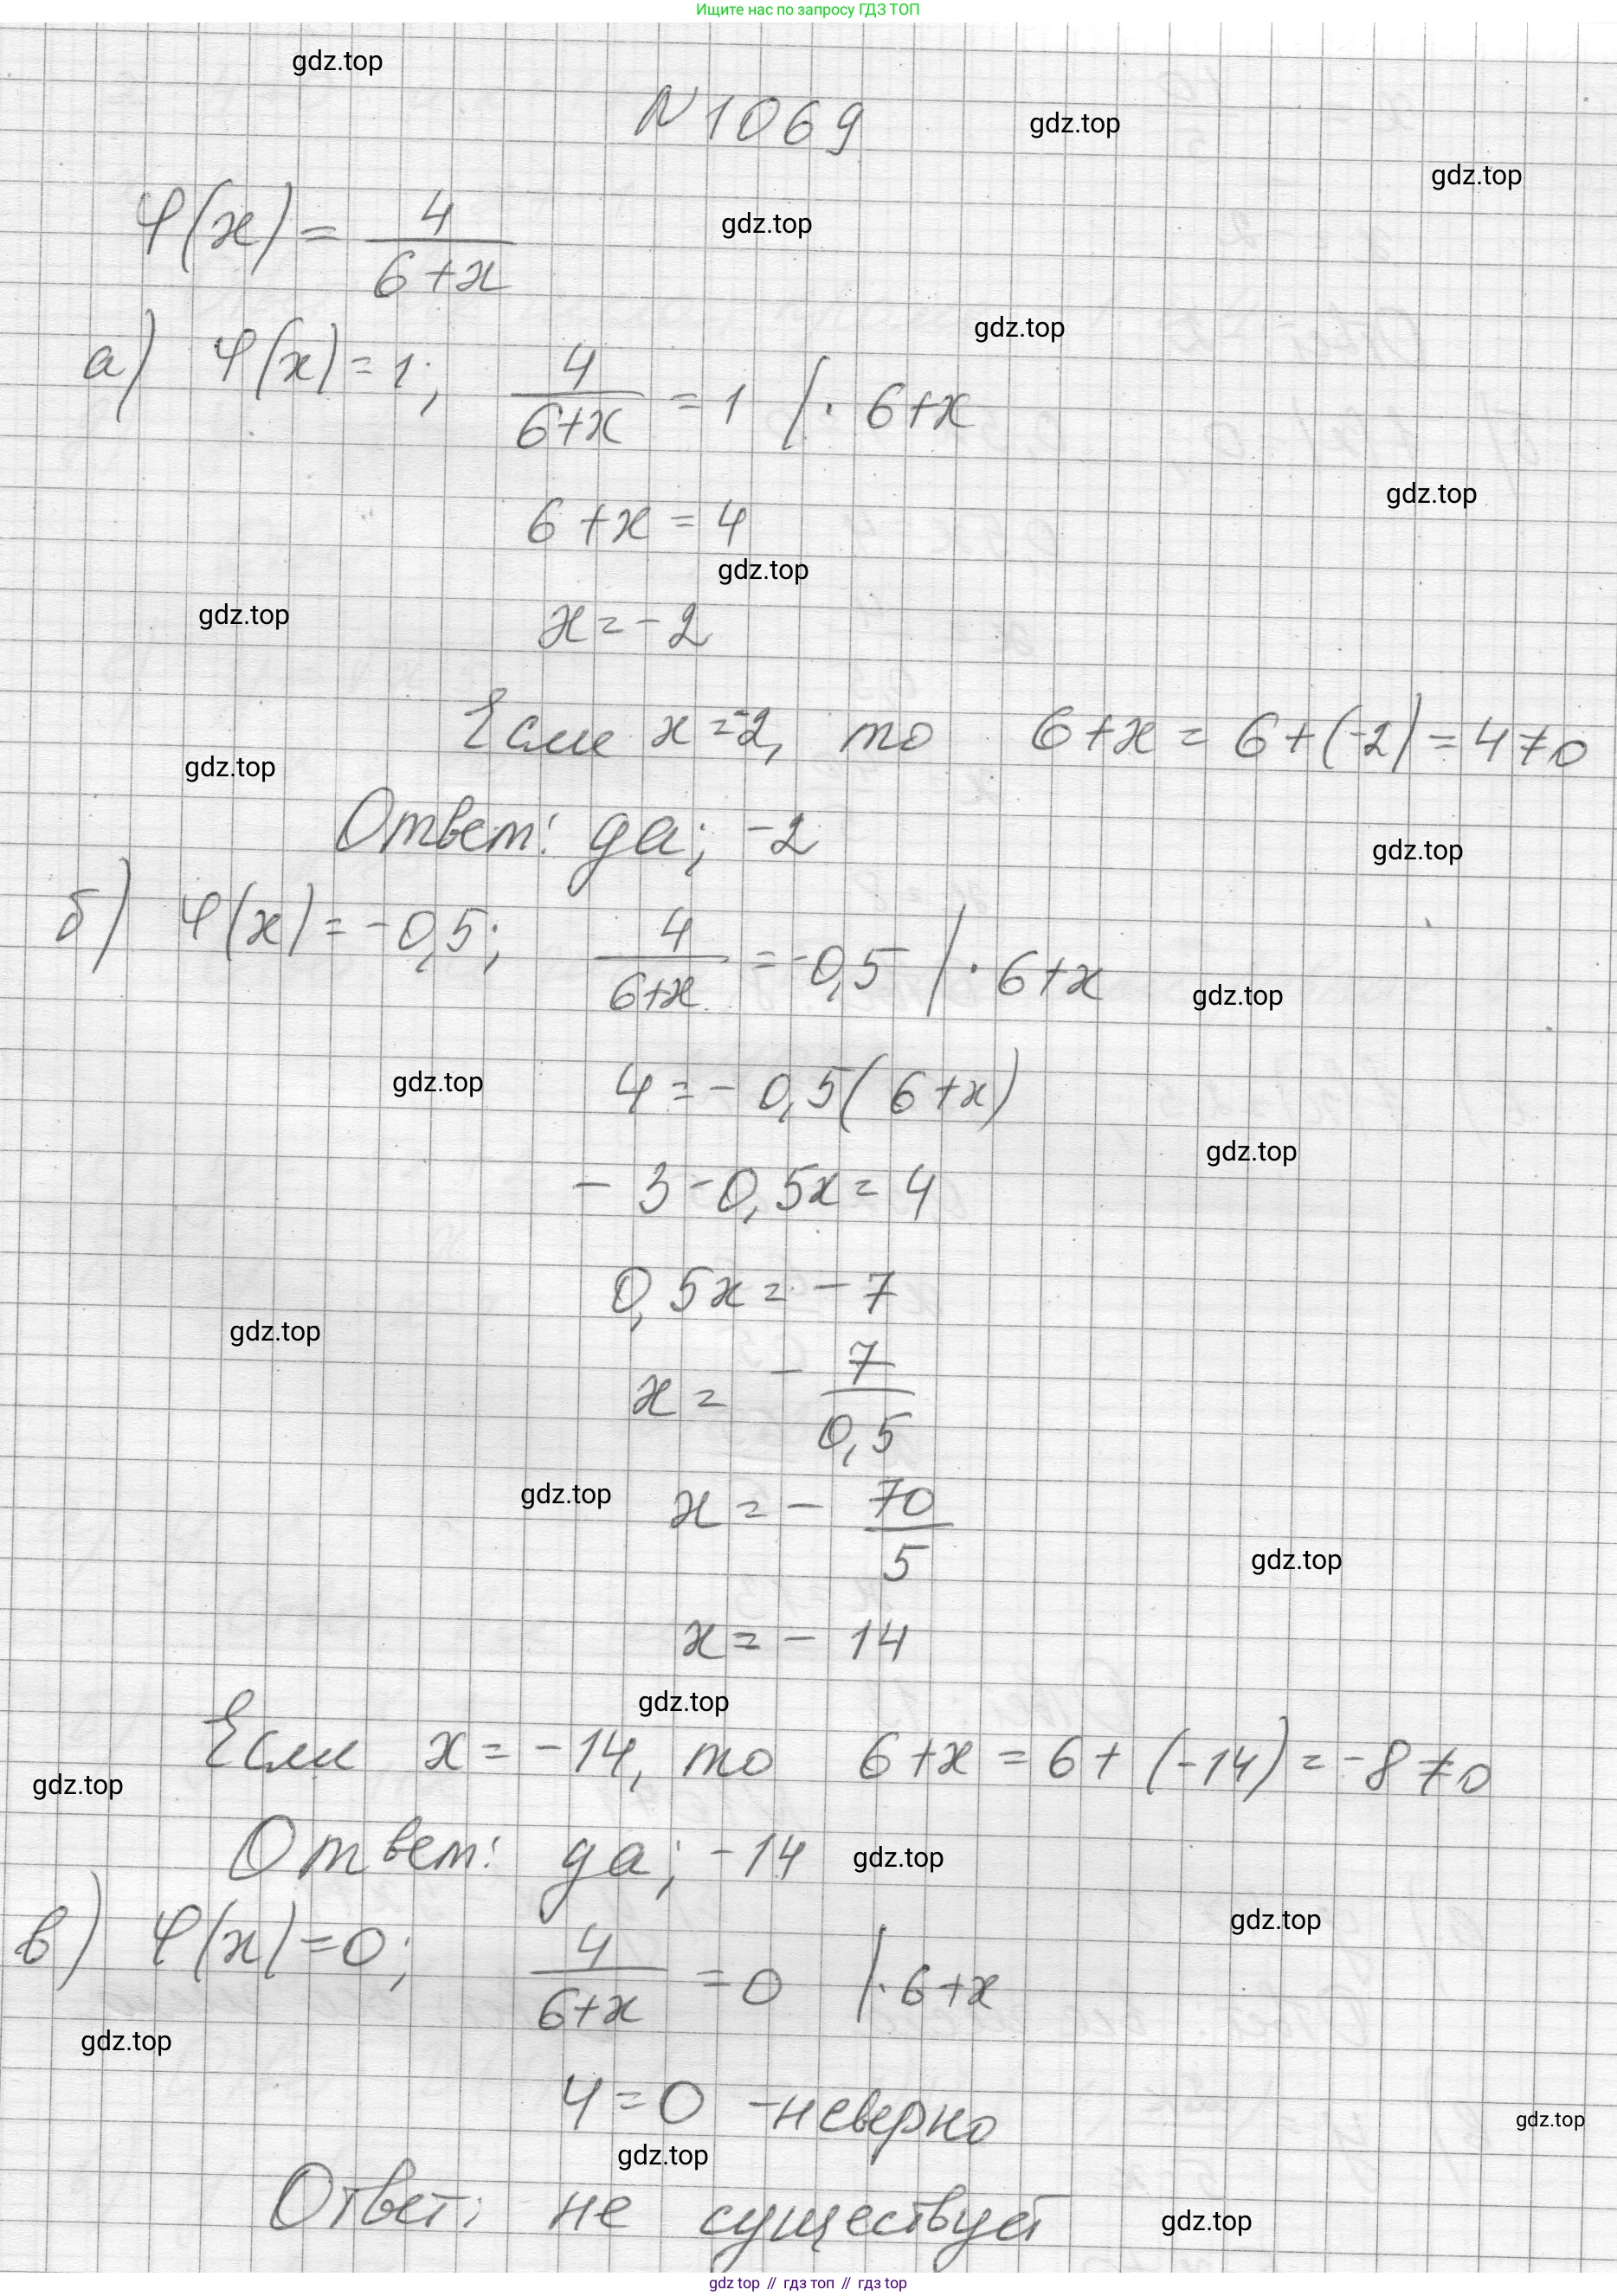 Ищите нас по запросу ГДЗ ТОП
gdz.top
N 1069
gdz.top
gdz.top
φ(x) = 4/(6+x)
gdz.top
gdz.top
а) φ(x) = 1; 4/(6+x) = 1 | · 6+x
gdz.top
6 + x = 4
gdz.top
gdz.top
x = -2
Если x = -2, то 6+x = 6+(-2) = 4 ≠ 0
gdz.top
Ответ: да; -2
gdz.top
б) φ(x) = -0,5; 4/(6+x) = -0,5 | · 6+x
gdz.top
gdz.top
4 = - 0,5(6+x)
gdz.top
- 3 - 0,5x = 4
0,5x = - 7
gdz.top
x = - 7/0,5
gdz.top
x = - 70/5
gdz.top
x = - 14
gdz.top
Если x = -14, то 6+x = 6+(-14) = -8 ≠ 0
gdz.top
Ответ: да; -14
gdz.top
gdz.top
в) φ(x) = 0; 4/(6+x) = 0 | · 6+x
gdz.top
4 = 0 - неверно
gdz.top
gdz.top
Ответ: не существует
gdz.top
gdz top // гдз топ // гдз top